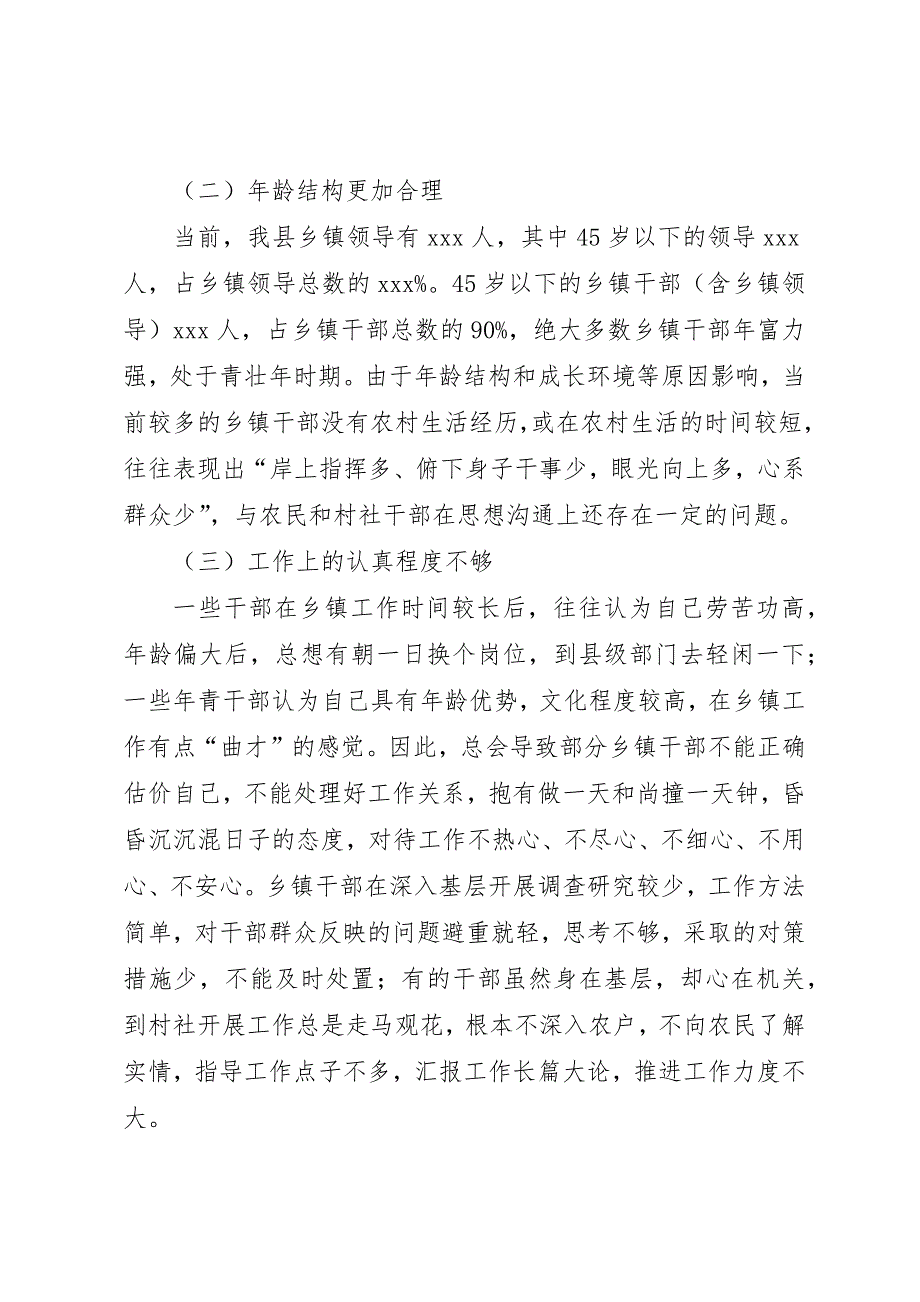 （二）年龄结构更加合理
当前，我县乡镇领导有 xxx 人，其中 45 岁以下的领导 xxx
人，占乡镇领导总数的 xxx%。45 岁以下的乡镇干部（含乡镇领
导）xxx 人，占乡镇干部总数的 90%，绝大多数乡镇干部年富力
强，处于青壮年时期。由于年龄结构和成长环境等原因影响，当
前较多的乡镇干部没有农村生活经历，或在农村生活的时间较短，
往往表现出“岸上指挥多、俯下身子干事少，眼光向上多，心系
群众少”，与农民和村社干部在思想沟通上还存在一定的问题。
（三）工作上的认真程度不够
一些干部在乡镇工作时间较长后，往往认为自己劳苦功高，
年龄偏大后，总想有朝一日换个岗位，到县级部门去轻闲一下；
一些年青干部认为自己具有年龄优势，文化程度较高，在乡镇工
作有点“曲才”的感觉。因此，总会导致部分乡镇干部不能正确
估价自己，不能处理好工作关系，抱有做一天和尚撞一天钟，昏
昏沉沉混日子的态度，对待工作不热心、不尽心、不细心、不用
心、不安心。乡镇干部在深入基层开展调查研究较少，工作方法
简单，对干部群众反映的问题避重就轻，思考不够，采取的对策
措施少，不能及时处置；有的干部虽然身在基层，却心在机关，
到村社开展工作总是走马观花，根本不深入农户，不向农民了解
实情，指导工作点子不多，汇报工作长篇大论，推进工作力度不
大。